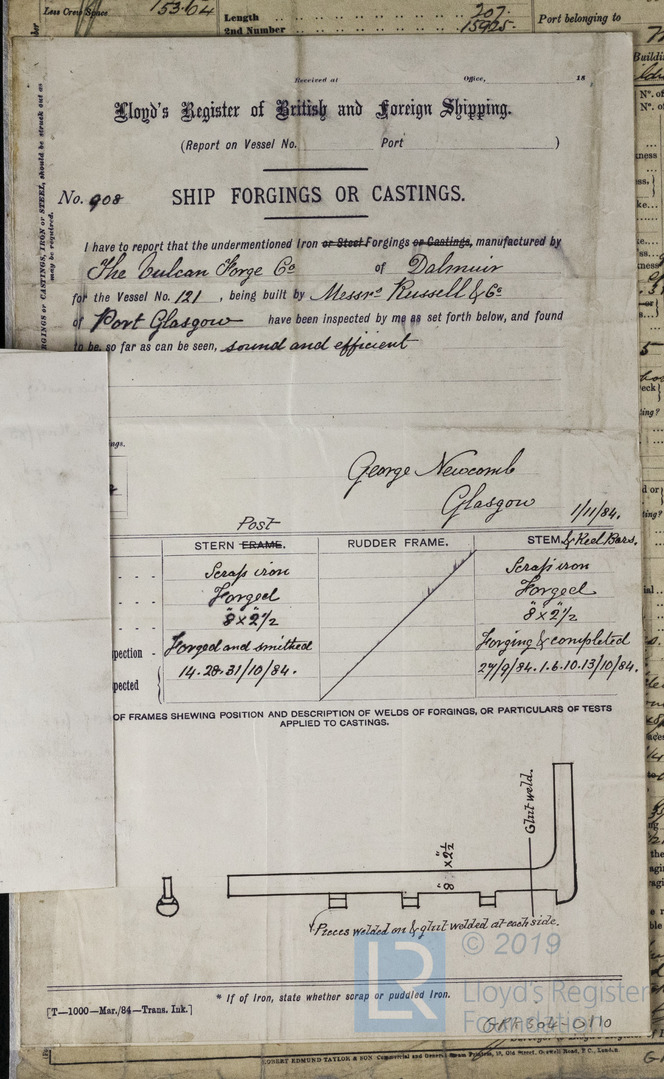 Less Crew Space 153.64
Length 207.
2nd Number 15925
Port belonging to
Received at Office, 18
Lloyd's Register of British and Foreign Shipping.
(Report on Vessel No. Port )
No. 908 SHIP FORGINGS OR CASTINGS.
GINGS or CASTINGS, IRON or STEEL, should be struck out as
may be required.
I have to report that the undermentioned Iron or Steel Forgings or Castings, manufactured by
The Vulcan Forge Co of Dalmuir
for the Vessel No. 121, being built by Messrs Russell & Co
of Port Glasgow have been inspected by me as set forth below, and found
to be, so far as can be seen, sound and efficient
ngs.
George Newcomb
Glasgow 1/11/84.
Post
STERN FRAME. RUDDER FRAME. STEM & Keel Bars.
Scrap iron Scrap iron
Forged Forged
8" x 2"1/2 8" x 2"1/2
pection - Forged and smithed Forging & completed
pected 14.28.31/10/84. 27/9/84.1.6.10.13/10/84.
OF FRAMES SHEWING POSITION AND DESCRIPTION OF WELDS OF FORGINGS, OR PARTICULARS OF TESTS
APPLIED TO CASTINGS.
Glut weld.
8" x 2"1/2
Pieces welded on & glut welded at each side.
© 2019
LR
Lloyd's Register
Foundation
* If of Iron, state whether scrap or puddled Iron.
[T—1000—Mar./84—Trans. Ink.]
GRF 304-0110
ROBERT EDMUND TAYLOR & SON